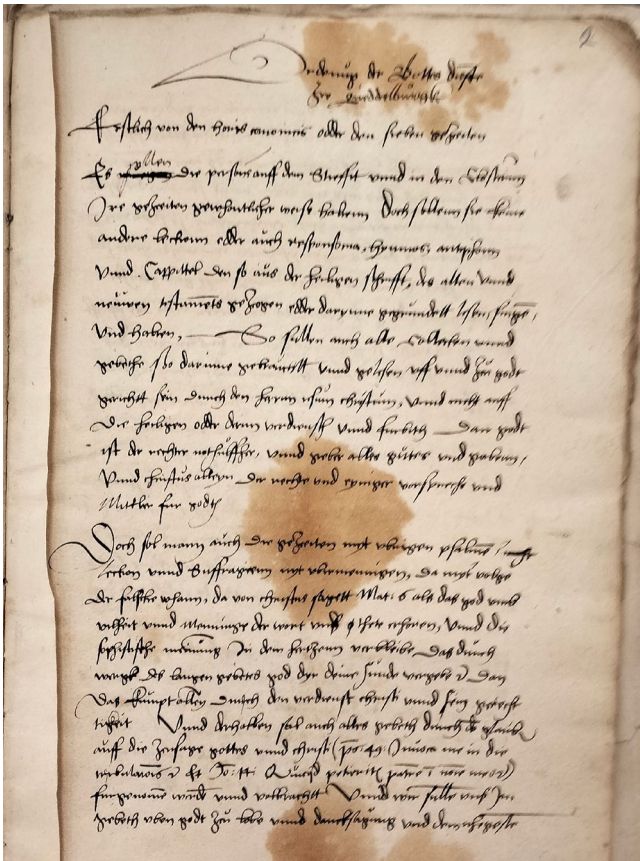 2
Ordenung der Gottes dienste
Zcu Queddelburgk
Erstlich von den horis canonicis odder den sieben gezeiten
Es sollen die personē auff dem Streffit unnd in den Clostern
Ire gezeiten gewohntlicher weise haltenn Doch sollenn sie keine
andere lection edder auch responsoria, hymnos, antiphonn
Vnnd Cappittel den so aus der heiligen schrifft, des alten vnnd
neuwen testamēts gezogen edder darynne gegrundett lesen, singē,
Vnd halten, So sullen auch alle Collecten vnnd
gebethe szo darinne gebraucht vnnd gelesen uff vnnd zcu godt
gericht sein durch den herrn ihesum christum, vnnd nicht auff
Die heiligen oder derenn verdienst vnnd furbith Dan godt
ist der rechter nothulffher, vnnd geber alles gutes vnd gabenn,
Vnnd christus alleyn der rechte vnd eyniger vorspreche vnd
Mittler fur godth
Doch sol mann auch die gezeiten myt vbrigen psalmē
lection vnnd Suffragienn nyt vbermennigen, da myt nicht
der falsche whann, da von christus sagett Mat: 6 als das god vmb
vilheit vnnd mennige der wort erhoren, Vnnd die
sophistische meinūng In den hertzenn verbleibe Das durch
wergk des langen gebetes god dyr deine sunde vergebe Dan
Das kumpt allen durch den verdienst christi vnnd sein gerecht
tigkeit Vnnd derhalben sal auch alles gebeth durch de glaubē
auff die zcusage gottes vnnd christi (ps: 49:) invoca me in die
tribulationis Et Jo: Quicqd petieritis patrē ī noīe meo
furgenomē werdē vnnd volbracht Vnnd wir sullē vnß Im
gebeth vben godt zcu lobe vnnd dancksagung vnd